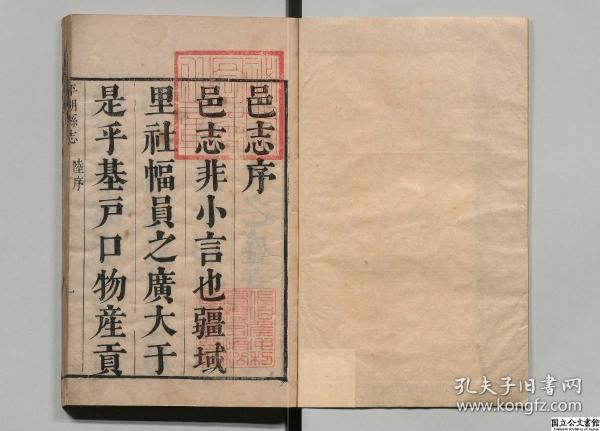 邑志序
邑志非小言也疆域
里社幅員之廣大于
是乎基戸口物産貢
平湖縣志 陸序 一
孔夫子旧书网
www.kongfz.com
国立公文書館
National Archives of Japan